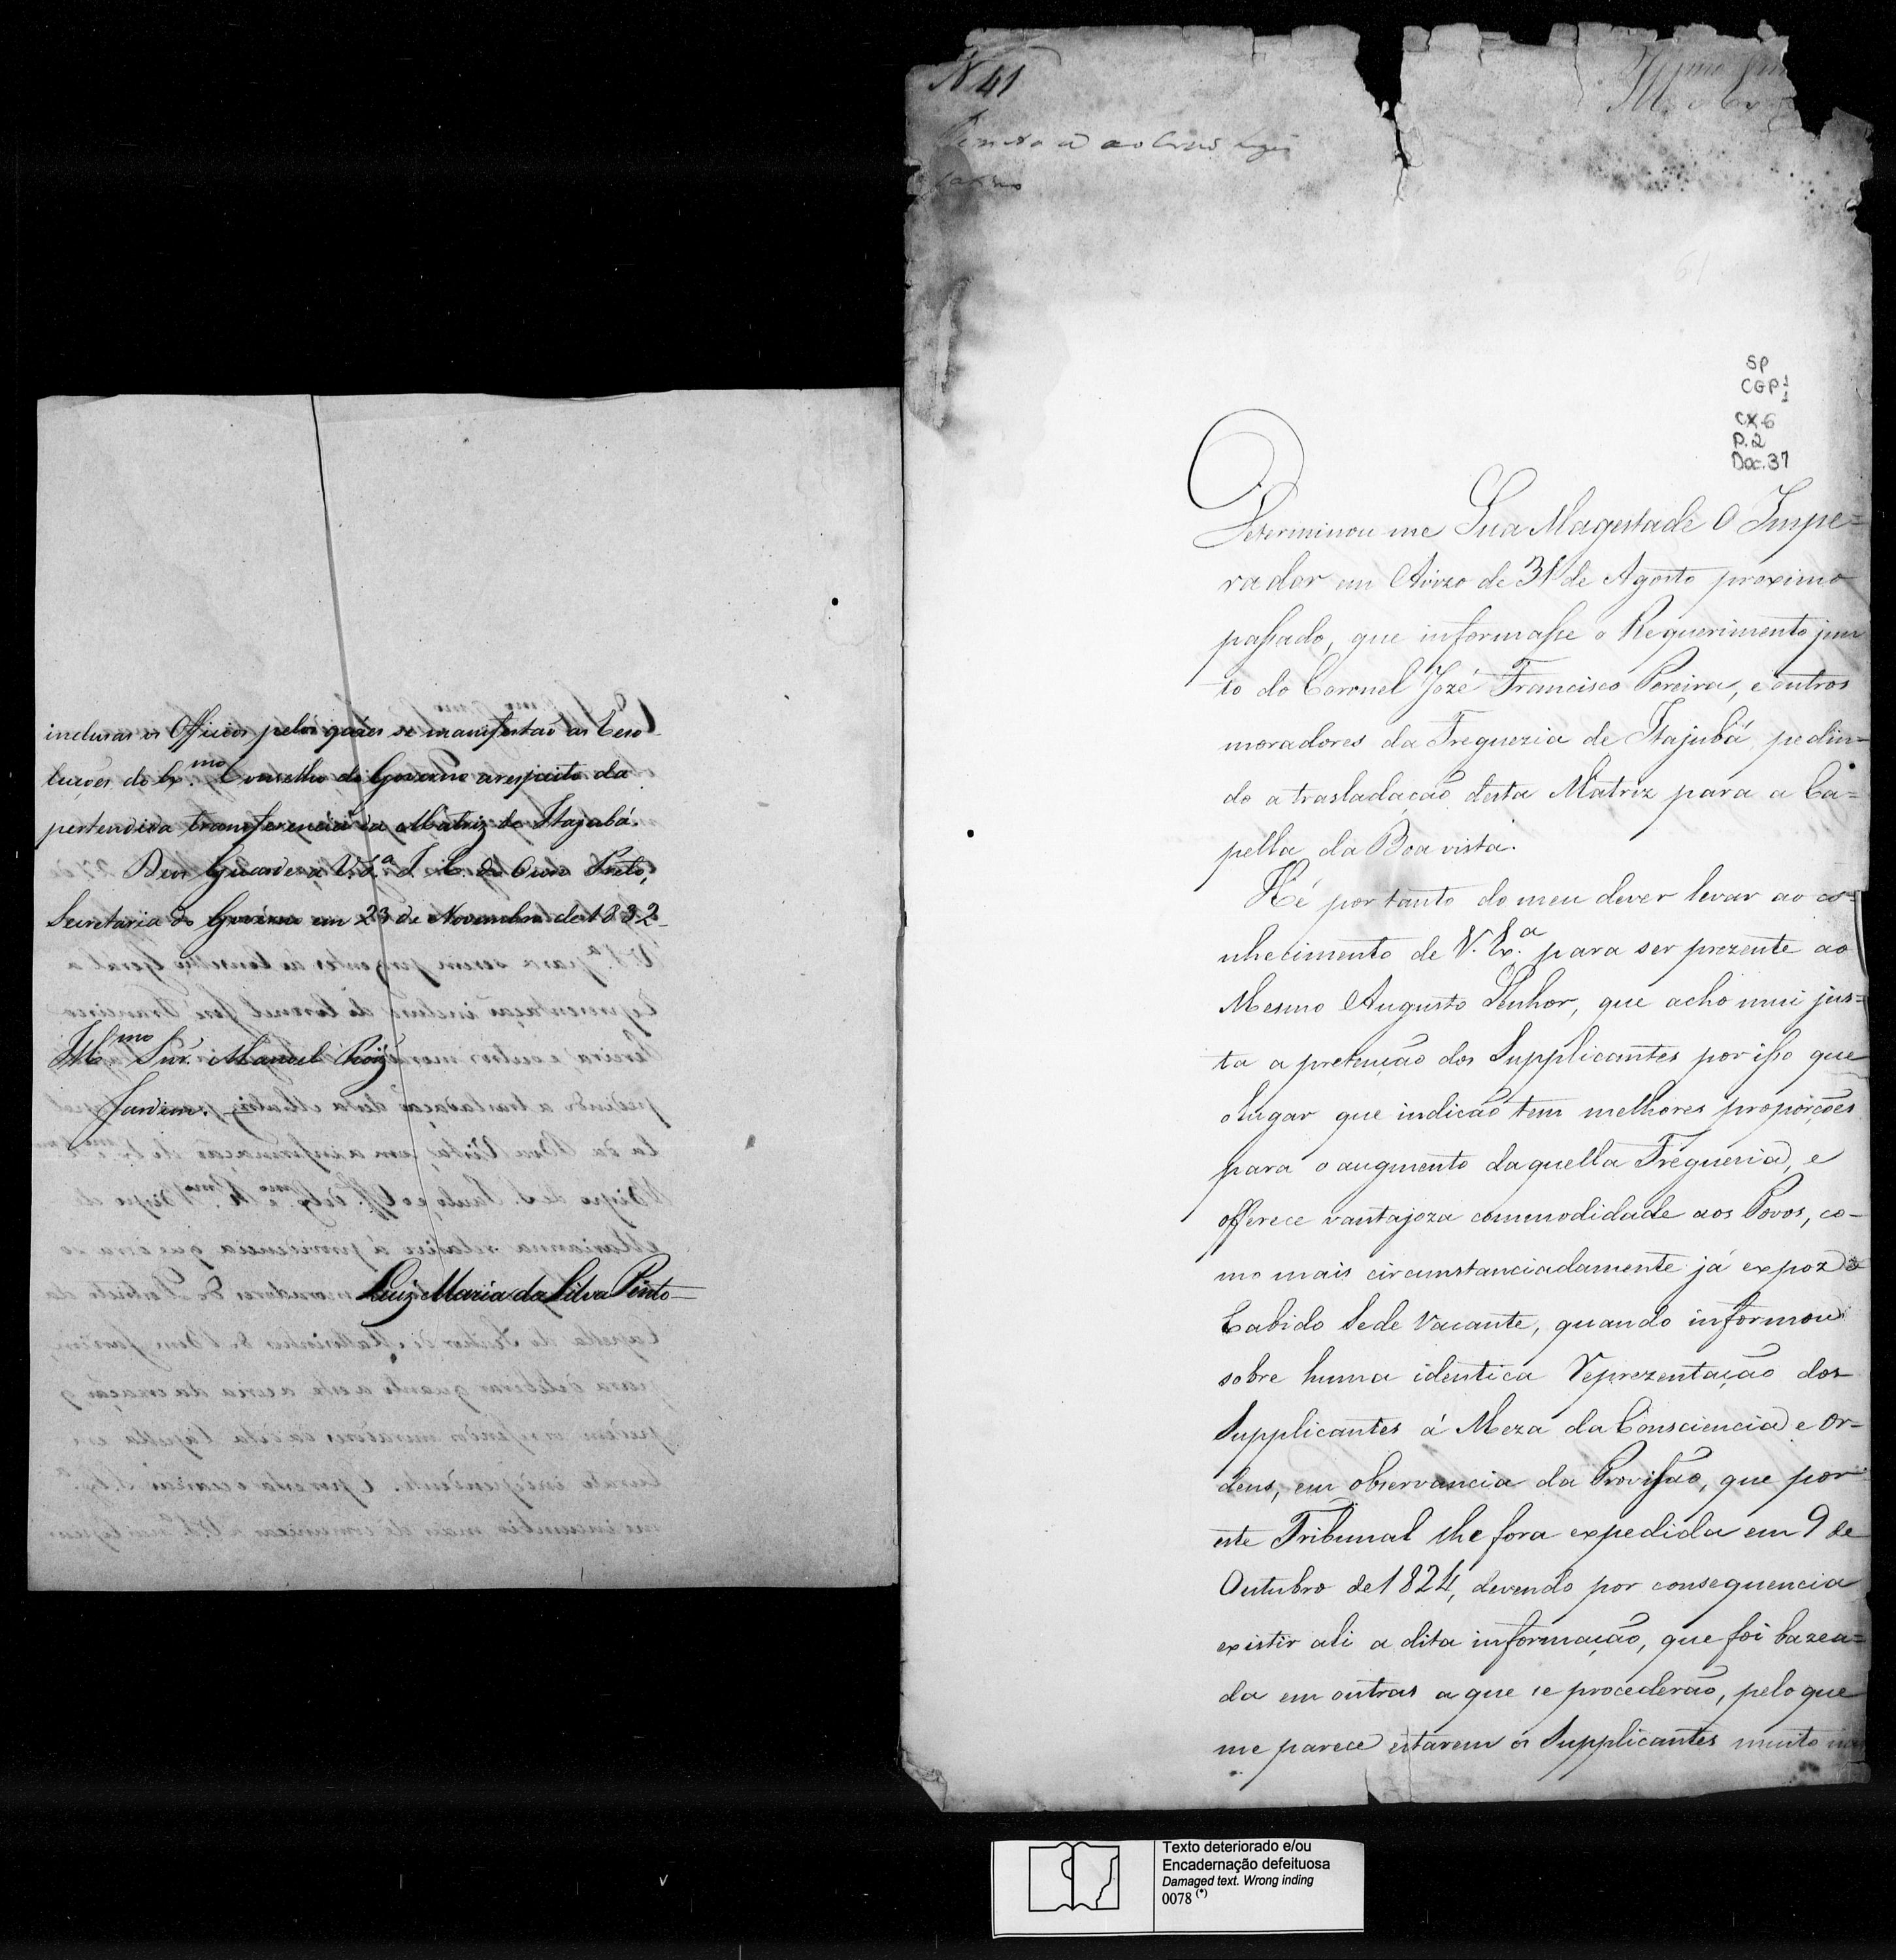 inclusas os Officios pelos quaes se manifestaõ as Reso-
luçoẽs do Ex.mo Conselho do Governo arespeito da
pertendida transferencia da Matriz de Itajubá.
Deos Guarde a V. S.a I. C. do Ouro Preto,
Secretaria do Governo em 23 de Novembro de 1832
Ill.mo Snr. Manoel Roiz
Jardim.
Luiz Maria da Silva Pinto
N 41
SP
CGP 1/1
CX. 6
P. 2
Doc. 37
Determinou me Sua Magestade O Impe=
rador em Avizo de 31 de Agosto proximo
passado, que informasse o Requerimento jun
to do Coronel Jozé Francisco Pereira, e outros
moradores da Freguezia de Itajubá pedin=
do a trasladacaõ desta Matriz para a Ca=
pella da Boa vista.
Hé por tanto do meu dever levar ao co=
nhecimento de V. Ex.a para ser prezente ao
Mesmo Augusto Senhor, que acho mui jus=
ta a pretençaõ dos Supplicantes por isso que
o lugar que indicaõ tem melhores proporçoẽs
para o augmento daquella Freguezia, e
offerece vantajoza commodidade aos Povos, co-
mo mais circumstanciadamente já expoz o
Cabido Sede Vacante, quando informou
sobre huma identica Reprezentaçaõ dos
Supplicantes á Meza da Consciencia e Or-
dens, em observancia da Provisaõ, que por
este Tribunal lhe fora expedida em 9 de
Outubro de 1824, devendo por consequencia
existir ali a dita informaçaõ, que foi bazea=
da em outras a que se procederaõ, pelo que
me parece estarem os Supplicantes muito
Texto deteriorado e/ou
Encadernação defeituosa
Damaged text. Wrong inding
0078 (*)